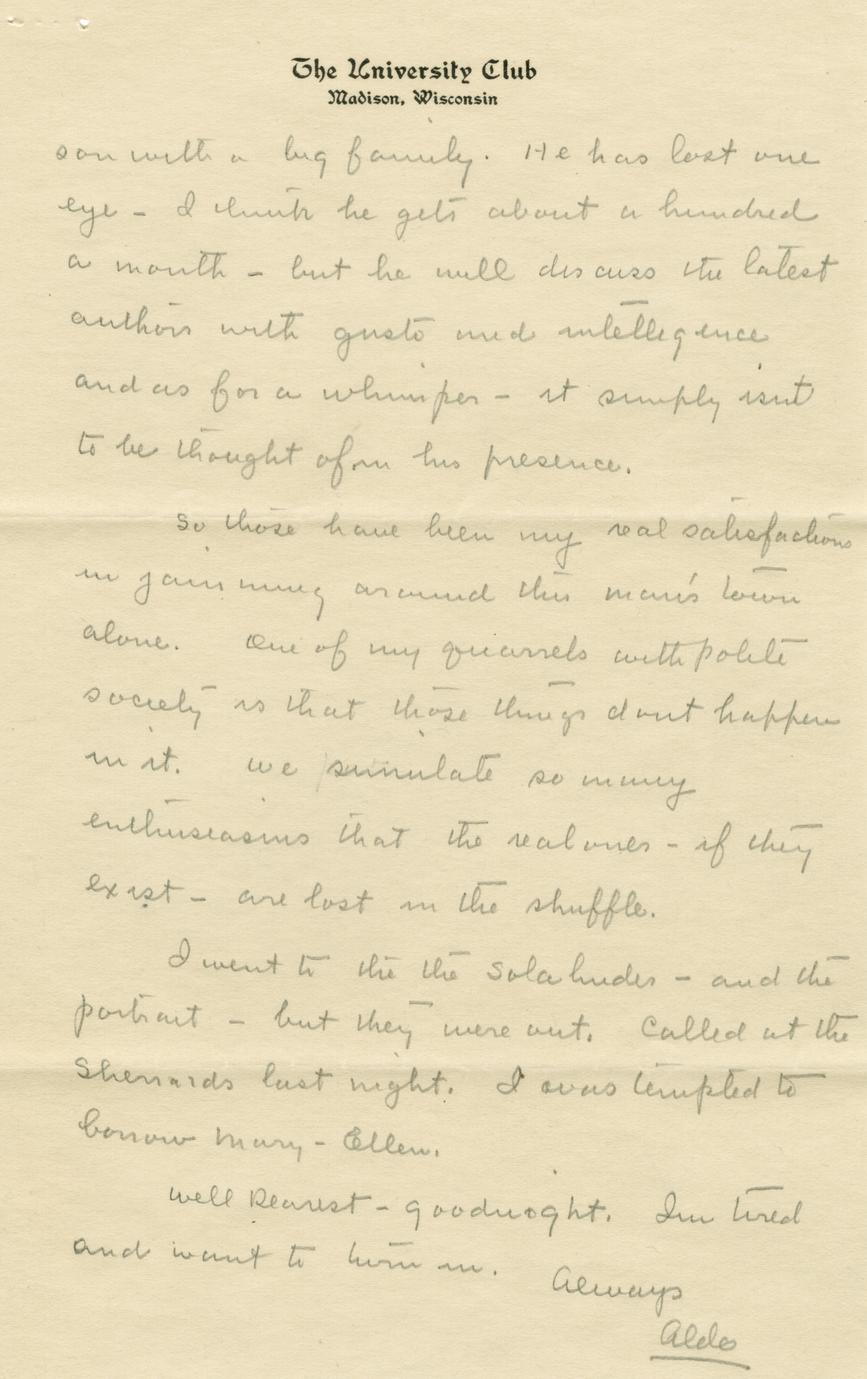 The University Club
Madison, Wisconsin
son with a big family. He has lost one
eye - I think he gets about a hundred
a month - but he will discuss the latest
authors with gusto and intelligence
and as for a whimper - it simply isnt
to be thought of in his presence.
So those have been my real satisfactions
in jamming around this man's town
alone. One of my quarrels with polite
society is that those things dont happen
in it. We simulate so many
enthusiasms that the real ones - if they
exist - are lost in the shuffle.
I went to the the - and the
portrait - but they were out. Called at the
Sherrards last night. I was tempted to
borrow Mary-Ellen.
Well Dearest - goodnight. Im tired
and want to turn in.
Always
Aldo